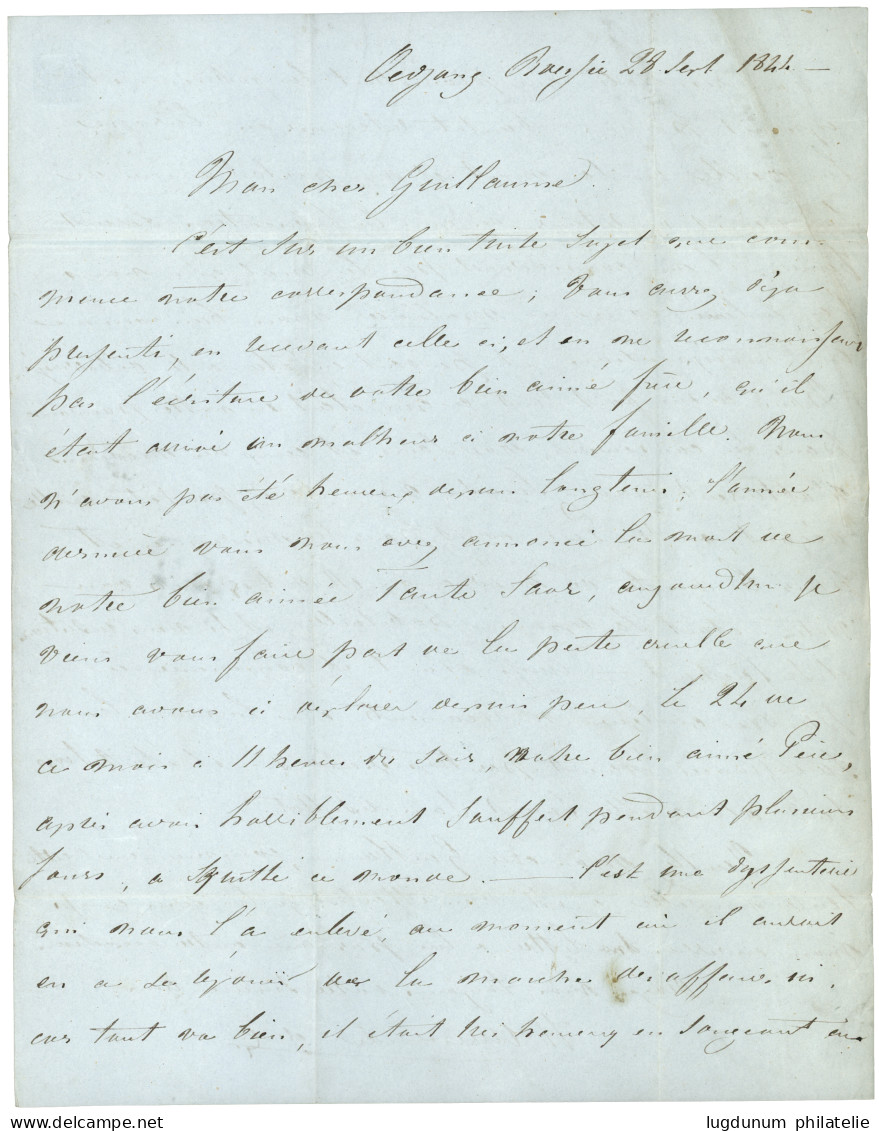 Oedjong Roesie 28 Sept 1844 —
Mon cher Guillaume.
C'est sur un bien triste sujet que com
mence notre correspondance; Vous aurez déja
pressenti, en recevant celle ci, et en ne reconnoissant
pas l'écriture de votre bien aimé frère, qu'il
étoit arrivé un malheur à notre famille. Nous
n'avons pas été heureux depuis longtems, l'année
dernière vous nous avez annoncé la mort de
notre bien aimée Tante Saar, aujourdhui je
viens vous faire part de la perte cruelle que
nous avons à déplorer depuis peu, le 24 de
ce mois à 11 heures du soir, notre bien aimé Père,
après avoir horriblement souffert pendant plusieurs
jours, a quitté ce monde. — C'est une dyssenterie
qui nous l'a enlevé, au moment où il auroit
eu a se réjouir de la marche des affaires ici,
car tout va bien, il étoit très heureux en songeant au
delcampe.net
lugdunum philatelie